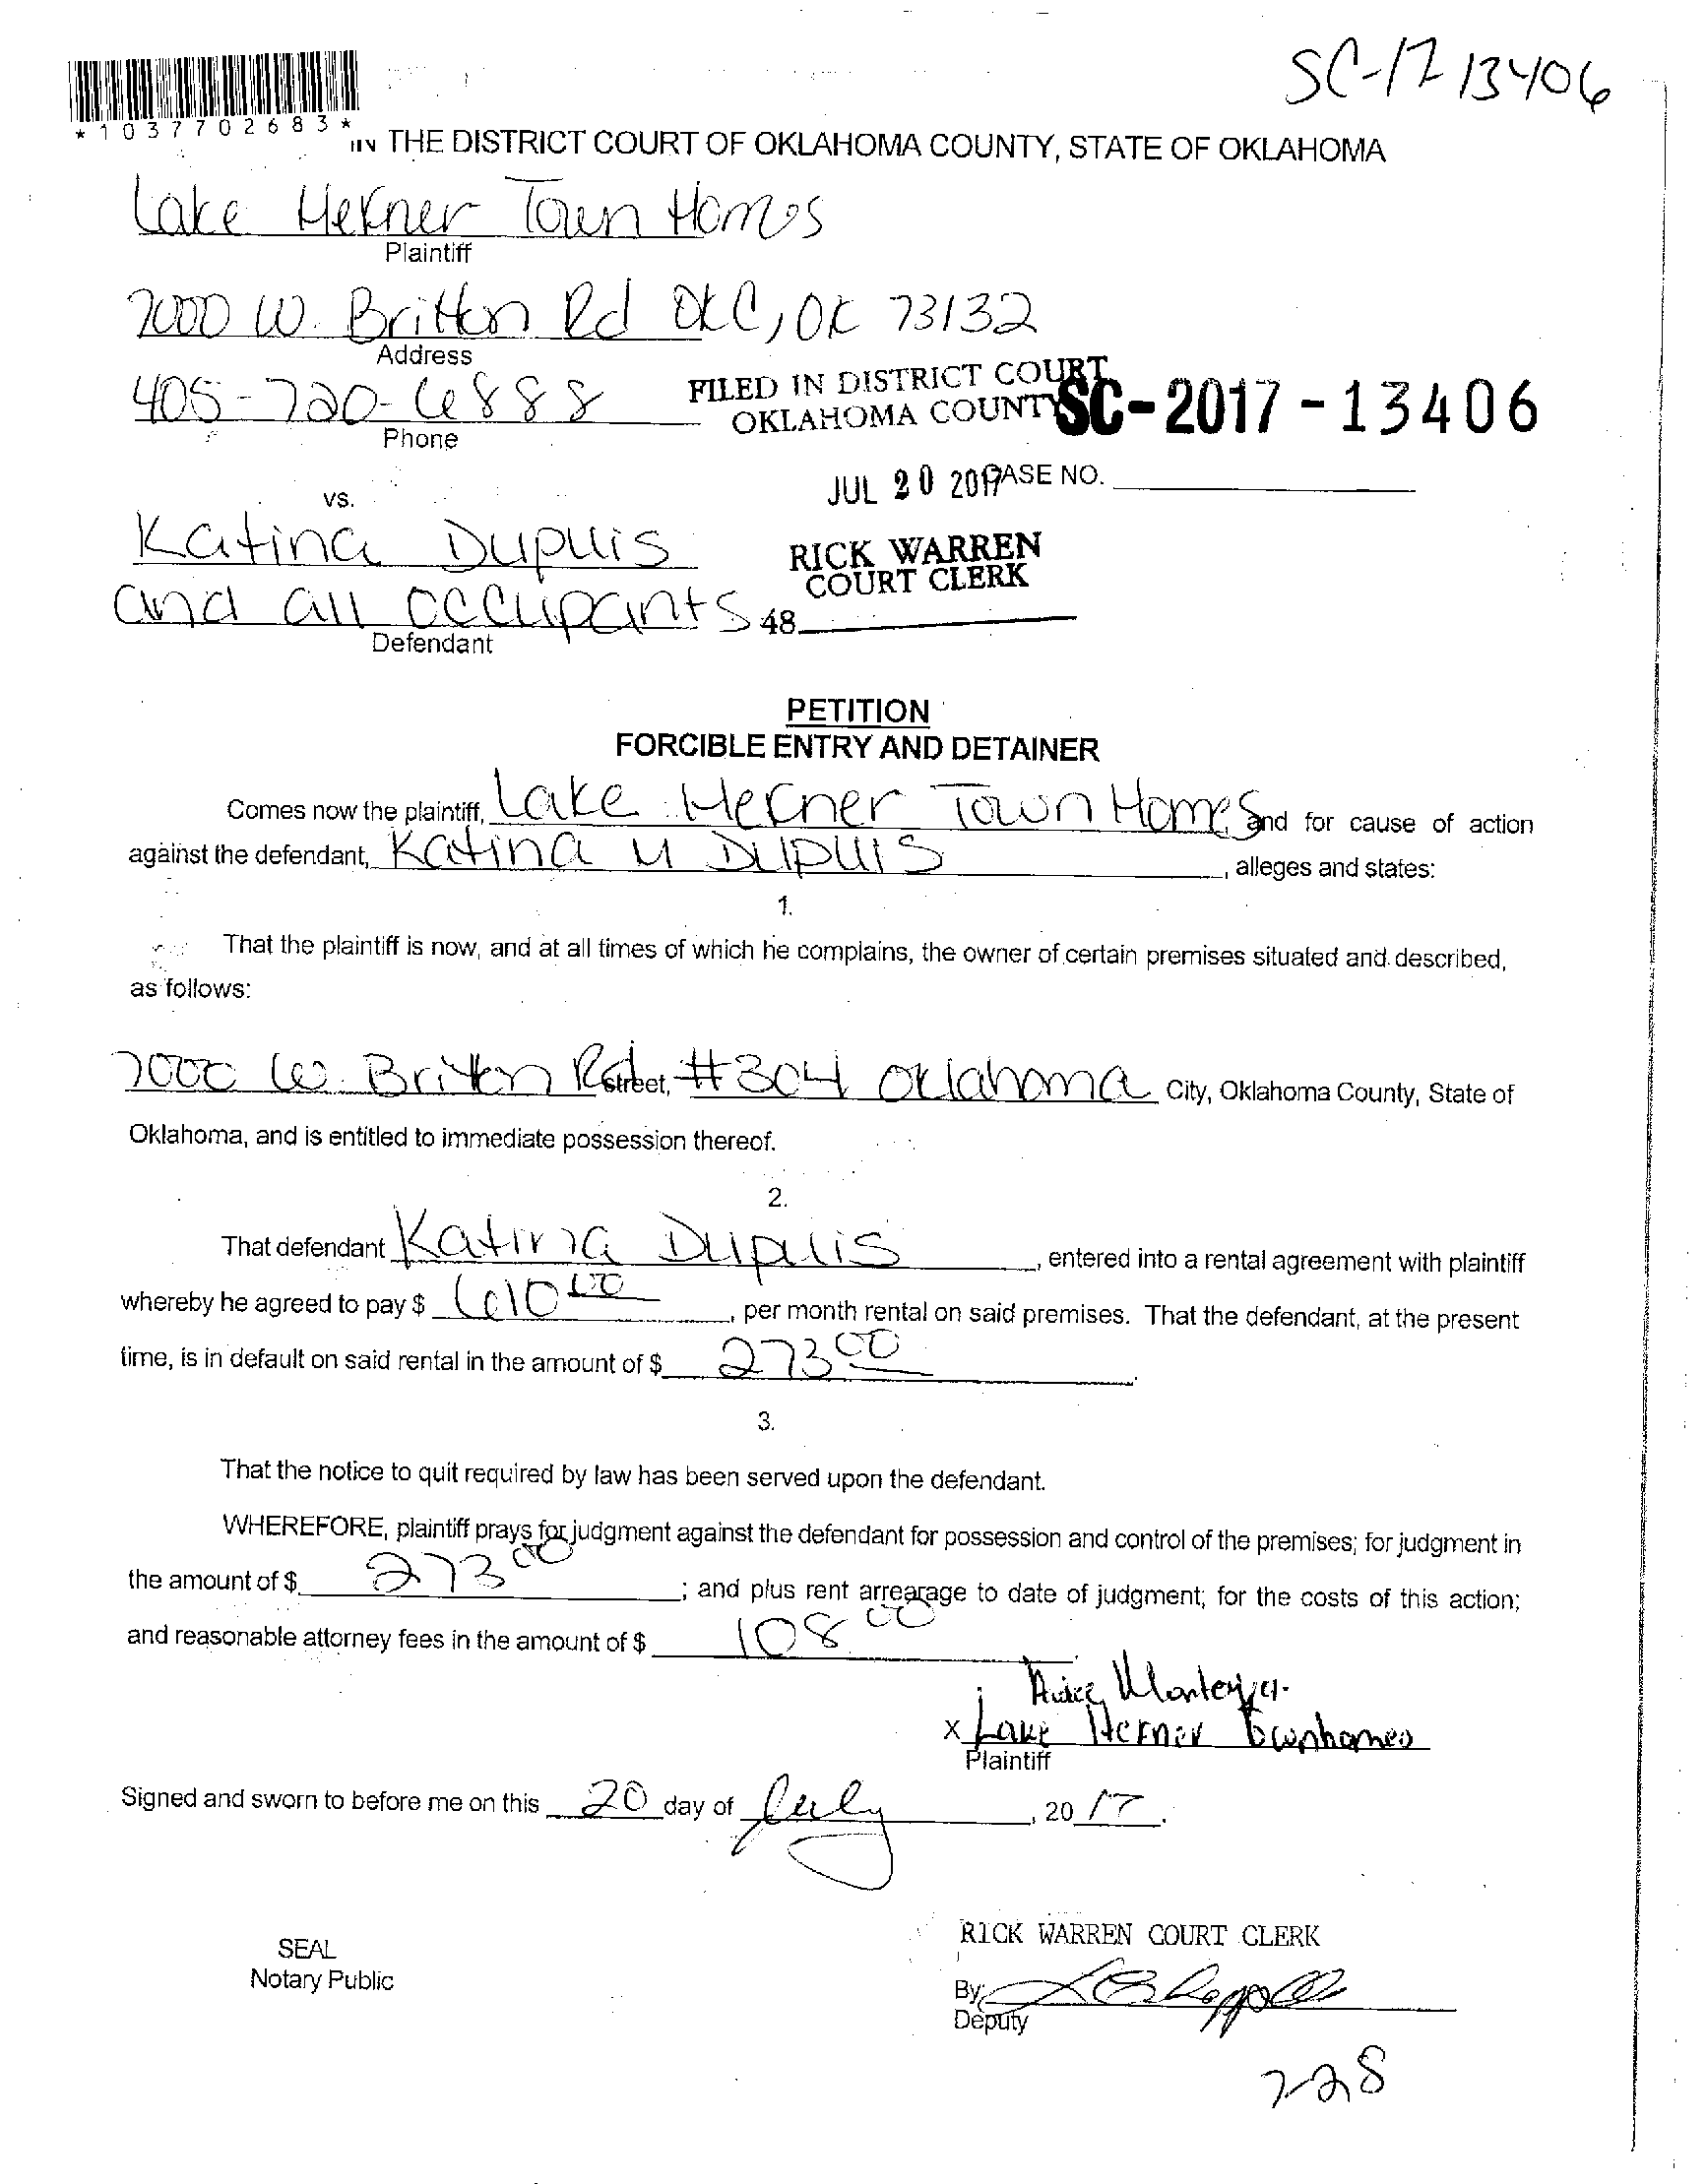 SC-17 13406
*1037702683*
IN THE DISTRICT COURT OF OKLAHOMA COUNTY, STATE OF OKLAHOMA
Lake Hefner Town Homes
Plaintiff
7000 W. Britton Rd OKC, OK 73132
Address
405-720-6888
Phone
FILED IN DISTRICT COURT
OKLAHOMA COUNTY
SC-2017-13406
JUL 20 2017
CASE NO.
vs.
Katina Dupuis
RICK WARREN
COURT CLERK
and all occupants
48
Defendant
PETITION
FORCIBLE ENTRY AND DETAINER
Comes now the plaintiff, Lake Hefner Town Homes and for cause of action
against the defendant, Katina M Dupuis, alleges and states:
1.
That the plaintiff is now, and at all times of which he complains, the owner of certain premises situated and described,
as follows:
7000 W. Britton Rd Street, #304 Oklahoma City, Oklahoma County, State of
Oklahoma, and is entitled to immediate possession thereof.
2.
That defendant Katina Dupuis, entered into a rental agreement with plaintiff
whereby he agreed to pay $ 610 00, per month rental on said premises. That the defendant, at the present
time, is in default on said rental in the amount of $ 273 00.
3.
That the notice to quit required by law has been served upon the defendant.
WHEREFORE, plaintiff prays for judgment against the defendant for possession and control of the premises; for judgment in
the amount of $ 273 00; and plus rent arrearage to date of judgment; for the costs of this action;
and reasonable attorney fees in the amount of $ 108 00.
x Lake Hefner Townhomes
Plaintiff
Signed and sworn to before me on this 20 day of July, 20 17.
SEAL
Notary Public
RICK WARREN COURT CLERK
By
Deputy
228